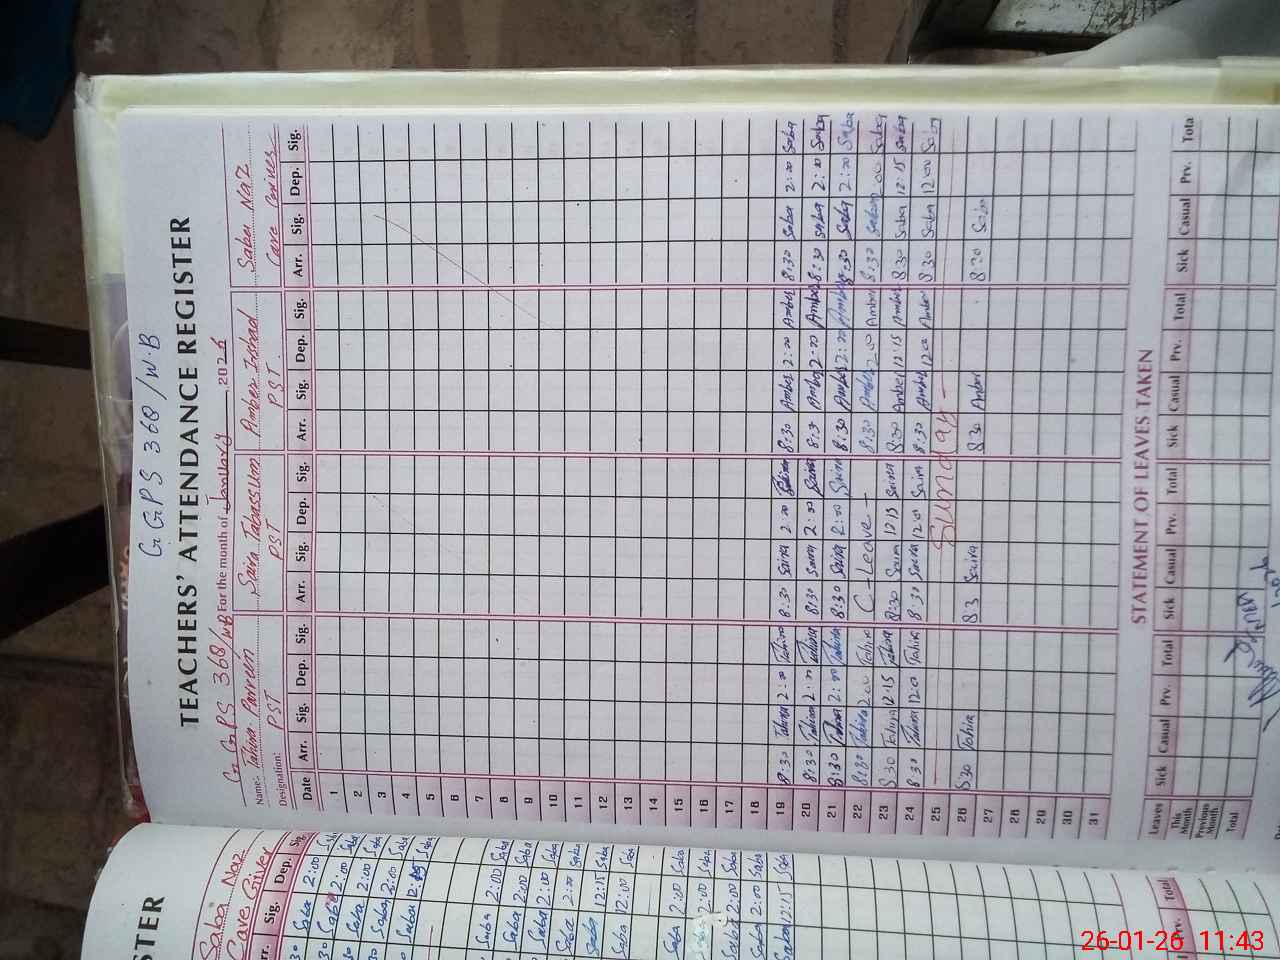 G GPS 368/W.B
TEACHERS' ATTENDANCE REGISTER
G GPS 368/WB For the month of January 2026
Name: Tahira Parveen Saira Tabassum Amber Irshad Saba Naz
Designation: PST PST PST Care Giver
Date Arr. Sig. Dep. Sig. Arr. Sig. Dep. Sig. Arr. Sig. Dep. Sig. Arr. Sig. Dep. Sig.
1
2
3
4
5
6
7
8
9
10
11
12
13
14
15
16
17
18
19 8:30 Tahira 2:00 Tahira 8:30 Saira 2:00 Saira 8:30 Amber 2:00 Amber 8:30 Saba 2:00 Saba
20 8:30 Tahira 2:00 Tahira 8:30 Saira 2:00 Saira 8:3 Amber 2:00 Amber 8:30 Saba 2:00 Saba
21 8:30 Tahira 2:00 Tahira 8:30 Saira 2:00 Saira 8:30 Amber 2:00 Amber 8:30 Saba 2:00 Saba
22 8:30 Tahira 2:00 Tahira C-Leave- 8:30 Amber 2:00 Amber 8:30 Saba 2:00 Saba
23 8:30 Tahira 12:15 Tahira 8:30 Saira 12:15 Saira 8:30 Amber 12:15 Amber 8:30 Saba 12:15 Saba
24 8:30 Tahira 1200 Tahira 8:30 Saira 1200 Saira 8:30 Amber 1200 Amber 8:30 Saba 1200 Saba
25 Sunday
26 8:30 Tahira 8:3 Saira 8:30 Amber 8:30 Saba
27
28
29
30
31
STATEMENT OF LEAVES TAKEN
Leaves Sick Casual Prv. Total Sick Casual Prv. Total Sick Casual Prv. Total Sick Casual Prv. Tota
This Month
Previous Month
Total
STER
Saba Naz
Care Giver
rr. Sig. Dep. Sig.
30 Saba 2:00 Saba
30 Saba 2:00 Saba
30 Saba 2:00 Saba
30 Saba 2:00 Saba
Saba 12:15 Saba
Saba 2:00 Saba
Saba 2:00 Saba
Saba 2:00 Saba
Saba 2:00 Saba
Saba 12:15 Saba
Saba 12:00 Saba
Saba 2:00 Saba
Saba 2:00 Saba
Saba 2:00 Saba
Saba 2:00 Saba
Saba 12:15 Saba
Prv. Total
26-01-26 11:43